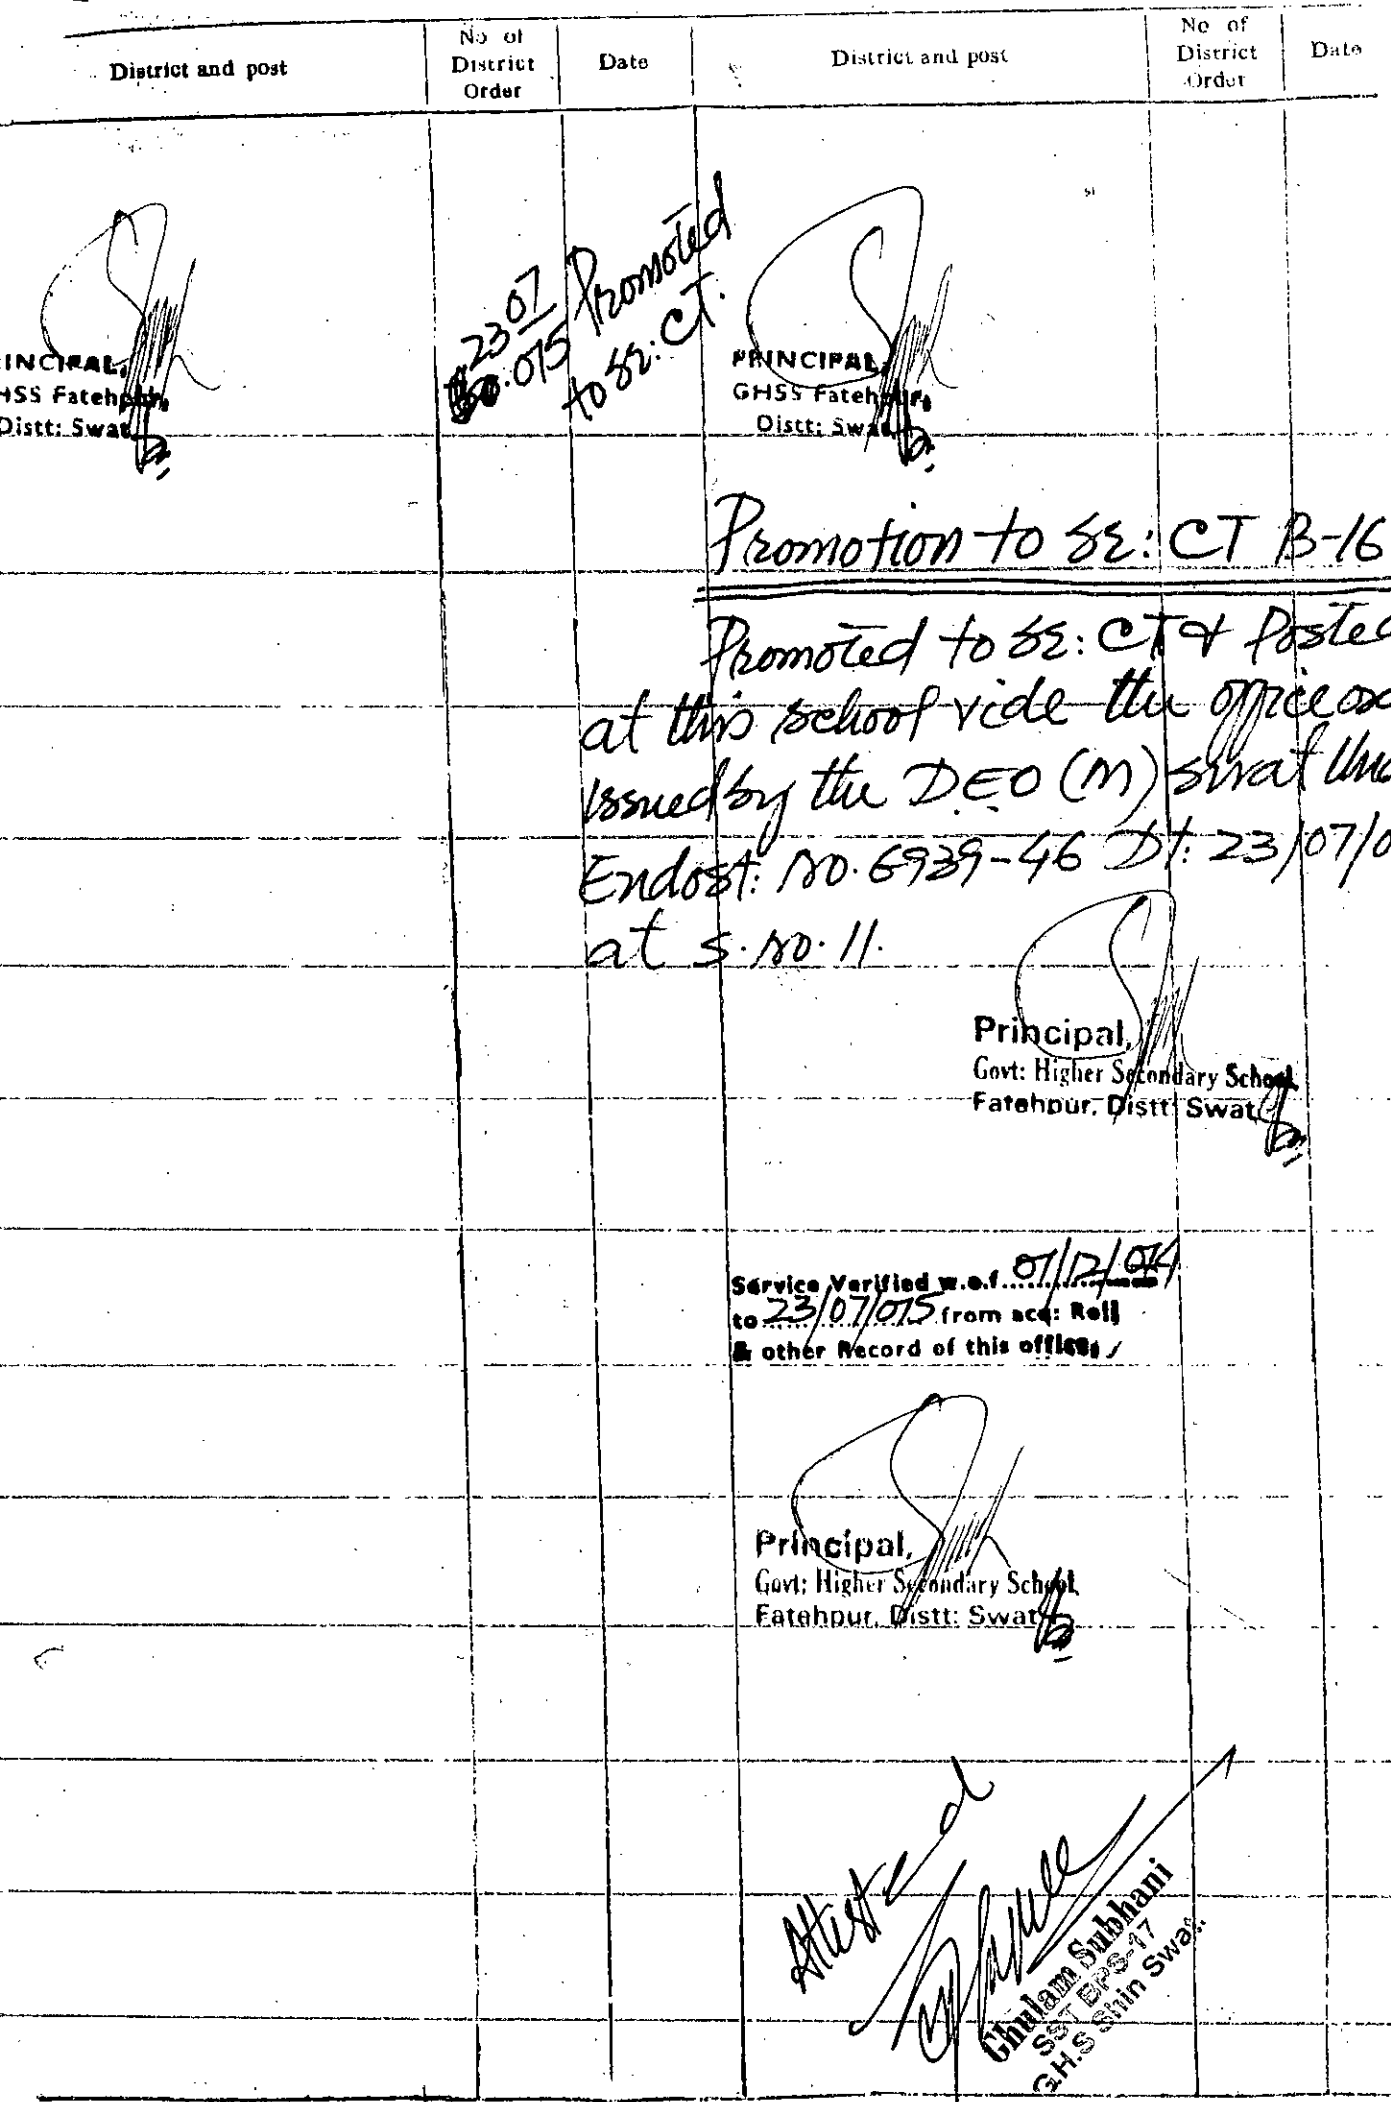 District and post
No of
District
Order
Date
District and post
No of
District
Order
Date
INCIPAL,
HSS Fatehpur,
Distt: Swat
23 07
015
Promoted
to Sr: CT.
PRINCIPAL,
GHSS Fatehpur,
Distt: Swat
Promotion to Sr: CT B-16
Promoted to Sr: CT & Posted
at this school vide the office
issued by the DEO (M) Swat
Endost: No. 6939-46 Dt: 23/07/0
at S. No. 11.
Principal,
Govt: Higher Secondary School,
Fatehpur, Distt: Swat
Service Verified w.e.f. 01/12/014
to 23/07/015 from acq: Roll
& other Record of this office,
Principal,
Govt: Higher Secondary School,
Fatehpur, Distt: Swat
Attested
Ghulam Subhani
SST BPS-17
G.H.S Shin Swat.